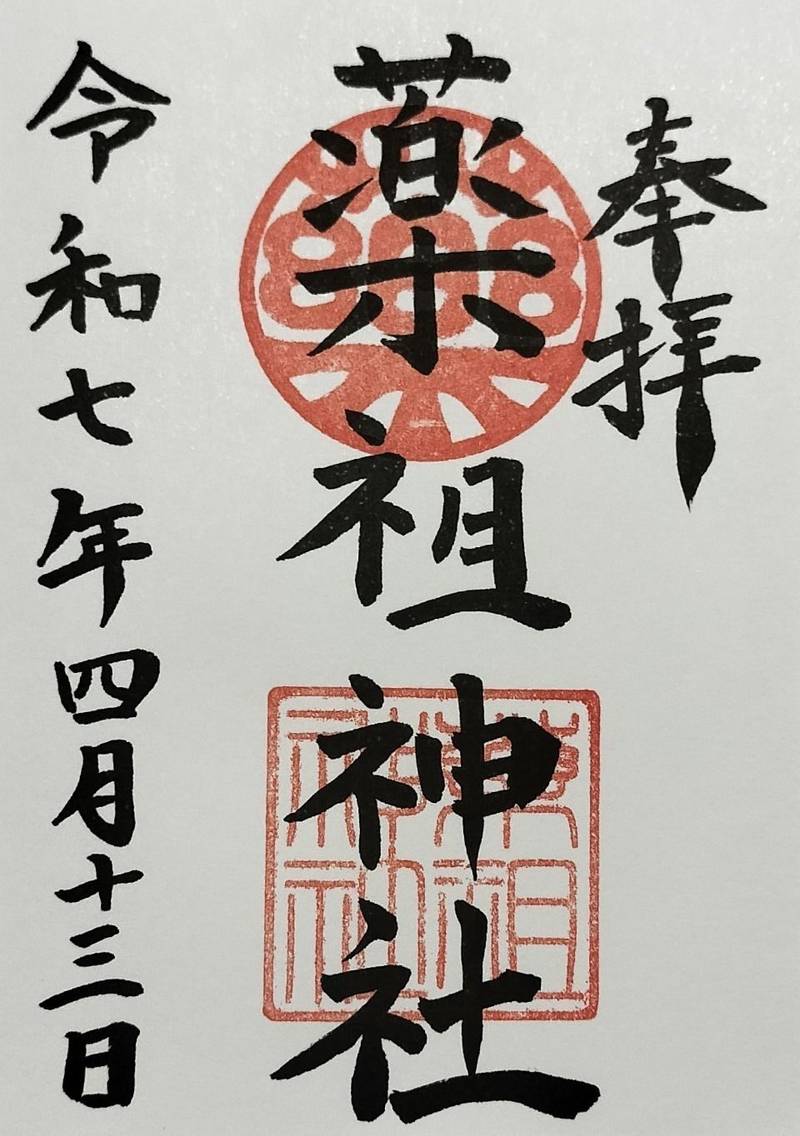 奉拝
薬祖神社
令和七年四月十三日
薬祖
神社